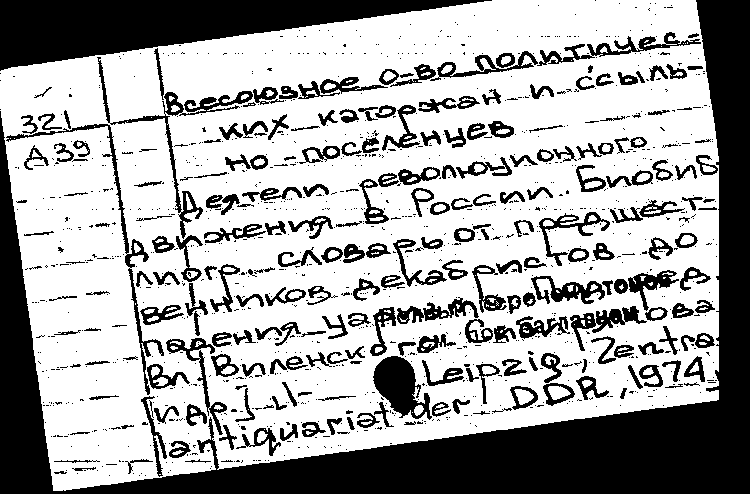 Всесоюзное о-во политичес-
321
ких каторжан и ссыль-
Д39
но-поселенцев
Деятели революционного
движения в России. Биобиб-
лиогр. словарь от предшест-
венников декабристов до
падения царизма. Под ред.
Вл. Виленского
[и др.] Ч1-
Leipzig, Zentra-
lantiquariat der DDR, 1974